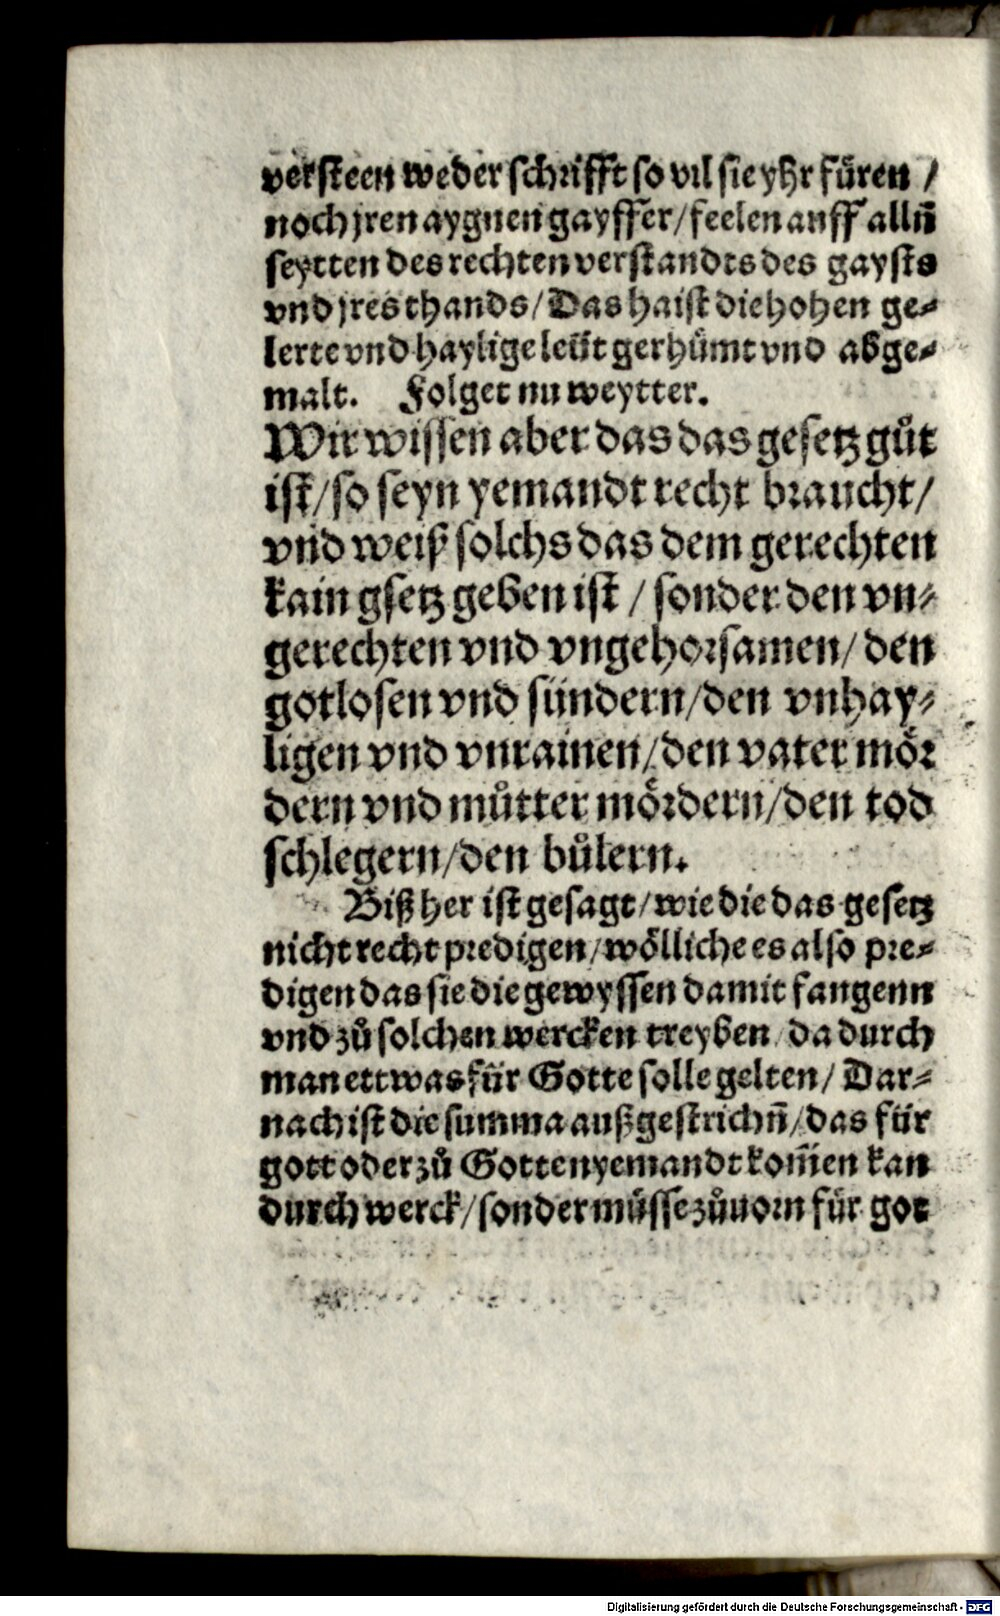 versteen weder schrifft so vil sie yhr fůren /
noch jren aygnen gayffer / feelen auff allñ
seytten des rechten verstandts des gaysts
vnd jres thands / Das haist die hohen ge⸗
lerte vnd haylige leüt gerhůmt vnd abge⸗
malt. Folget nu weytter.
Wir wissen aber das das gesetz gůt
ist / so seyn yemandt recht braucht /
vnd weiß solchs das dem gerechten
kain gsetz geben ist / sonder den vn⸗
gerechten vnd vngehorsamen / den
gotlosen vnd sündern / den vnhay⸗
ligen vnd vnrainen / den vater mör
dern vnd můtter mördern / den tod
schlegern / den bůlern.
Biß her ist gesagt / wie die das gesetz
nicht recht predigen / wölliche es also pre⸗
digen das sie die gewyssen damit fangenn
vnd zů solchen wercken treyben / da durch
man ettwas für Gotte solle gelten / Dar⸗
nach ist die summa außgestrichñ / das für
gott oder zů Gotten yemandt kom̃en kan
durch werck / sonder müsse zůuorn für got
Digitalisierung gefördert durch die Deutsche Forschungsgemeinschaft - DFG